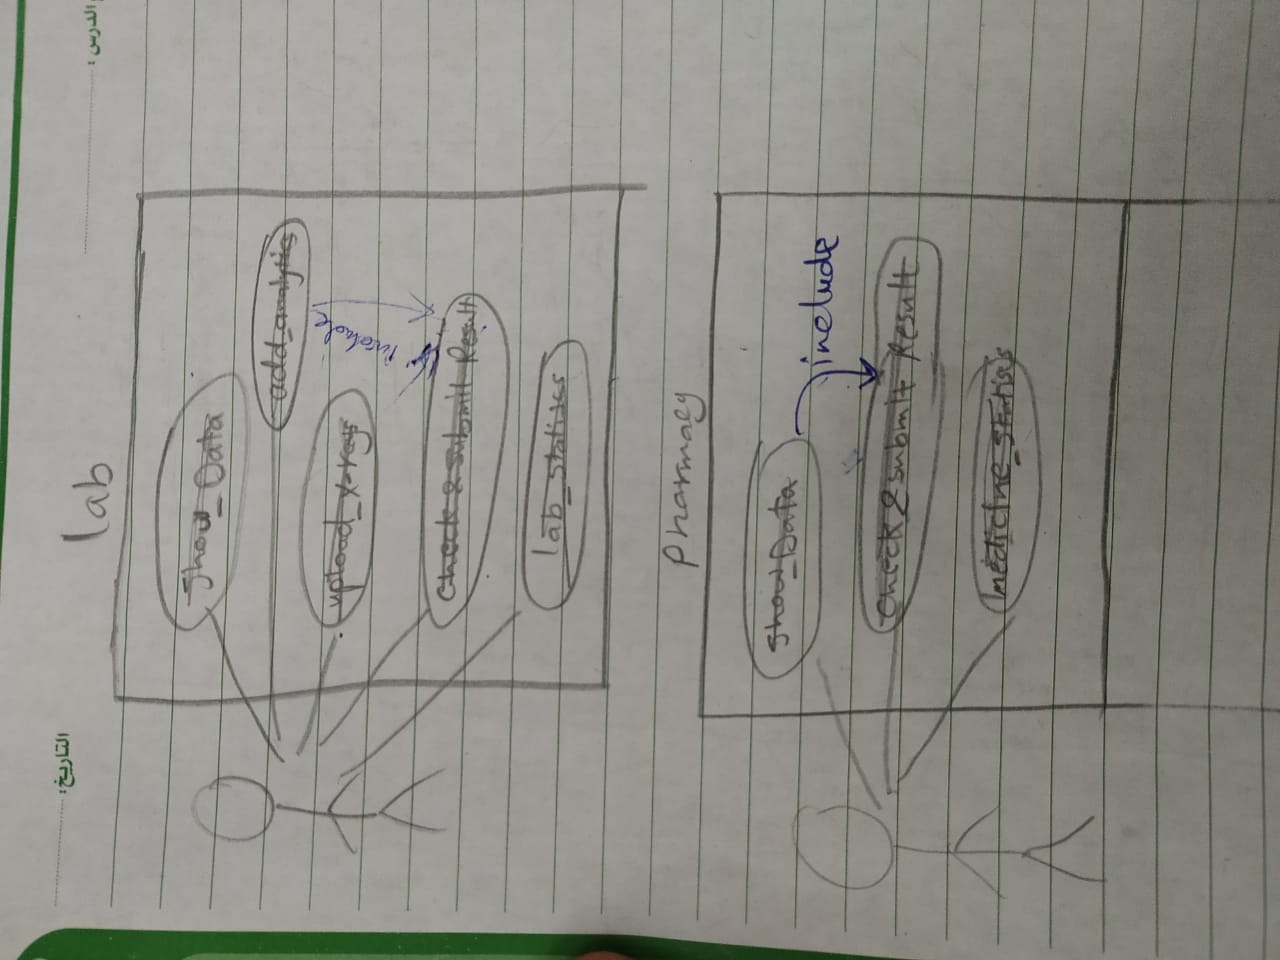 الدرس :
التاريخ:
Lab
show_Data
add_analytics
upload_x-rays
include
check & submit Result
lab_statitscs
Pharmacy
show_Data
include
check & submit Result